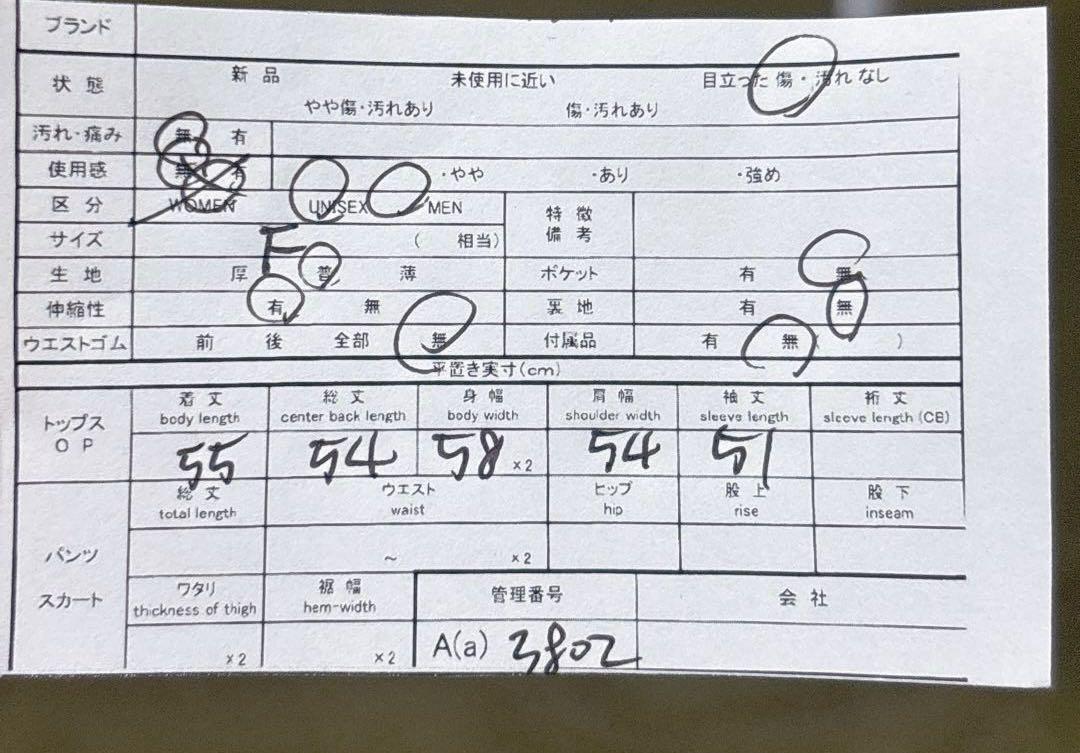 ブランド
状態 新品 未使用に近い 目立った傷・汚れなし
やや傷・汚れあり 傷・汚れあり
汚れ・痛み 無 有
使用感 無 有 ・やや ・あり ・強め
区分 WOMEN UNISEX MEN 特徴
備考
サイズ F ( 相当)
生地 厚 普 薄 ポケット 有 無
伸縮性 有 無 裏地 有 無
ウエストゴム 前 後 全部 無 付属品 有 無( )
平置き実寸(cm)
トップス
OP
着丈 総丈 身幅 肩幅 袖丈 裄丈
body length center back length body width shoulder width sleeve length sleeve length (CB)
55 54 58 ×2 54 51
総丈 ウエスト ヒップ 股上 股下
total length waist hip rise inseam
パンツ ~ ×2
スカート ワタリ 裾幅 管理番号 会社
thickness of thigh hem-width
×2 ×2 A(a) 3802